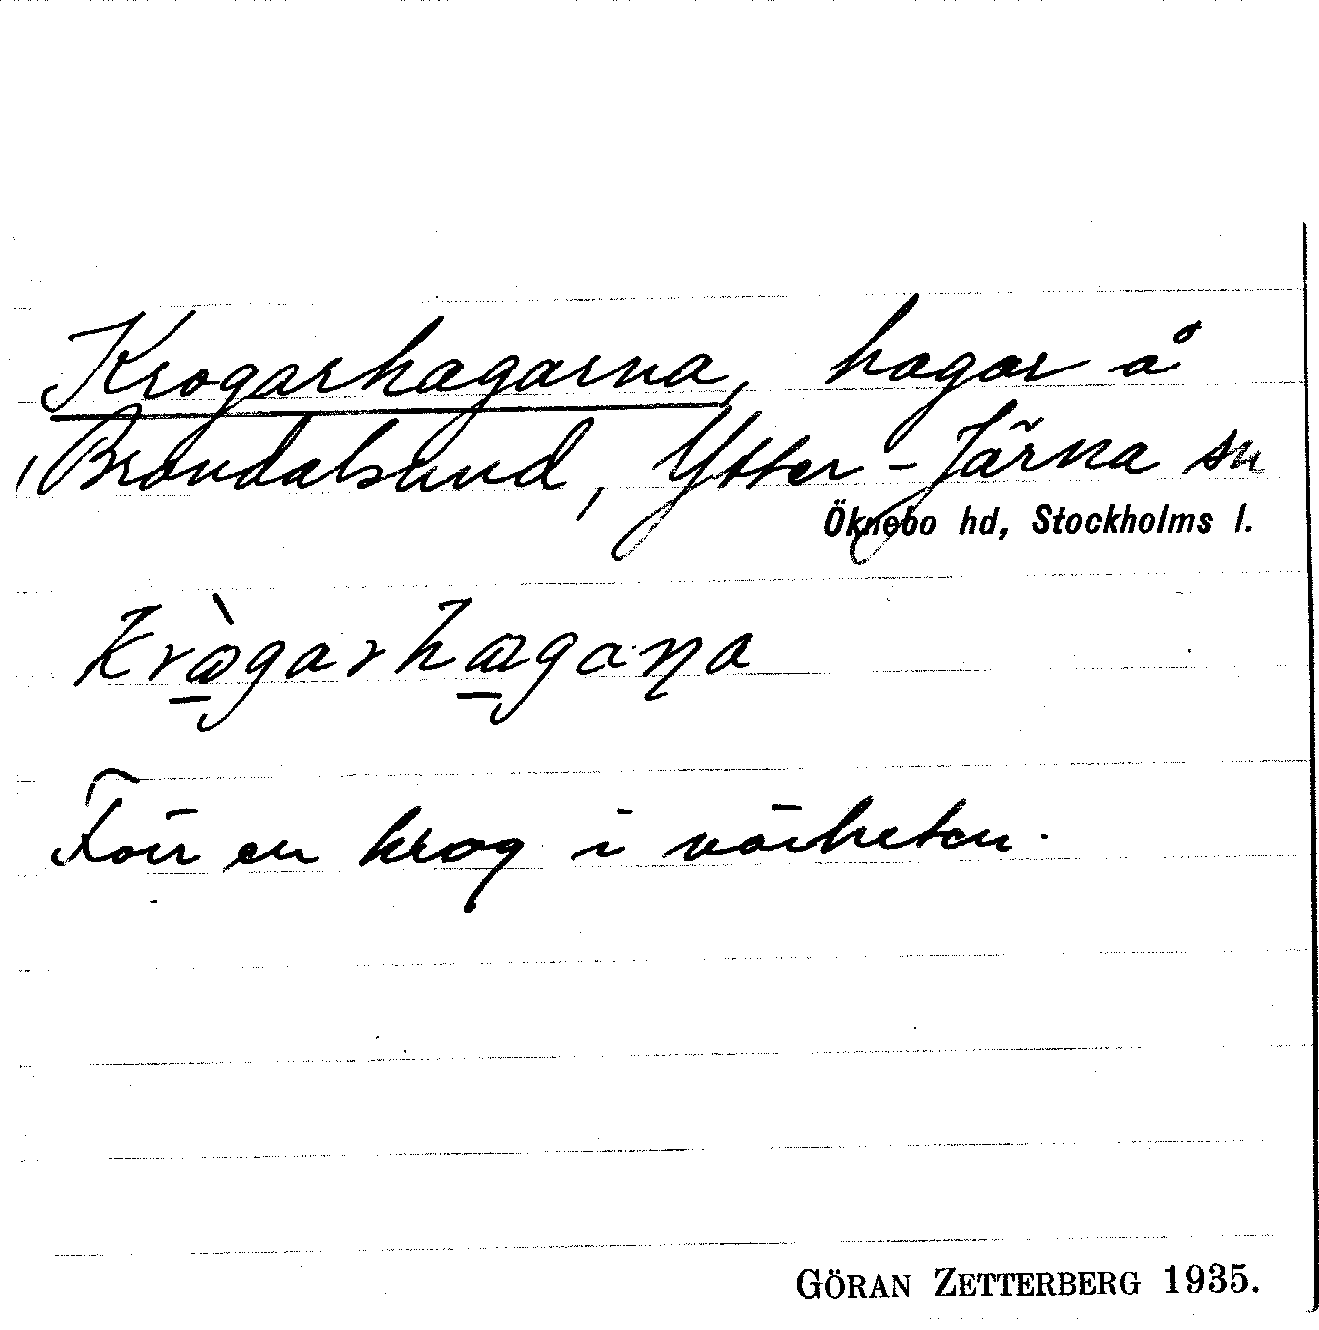 Krogarhagarna, hagar å
Brandalsund, Ytter-Järna sn
Öknebo hd, Stockholms l.
krògarhagaṇa
Förr en krog i närheten.
GÖRAN ZETTERBERG 1935.